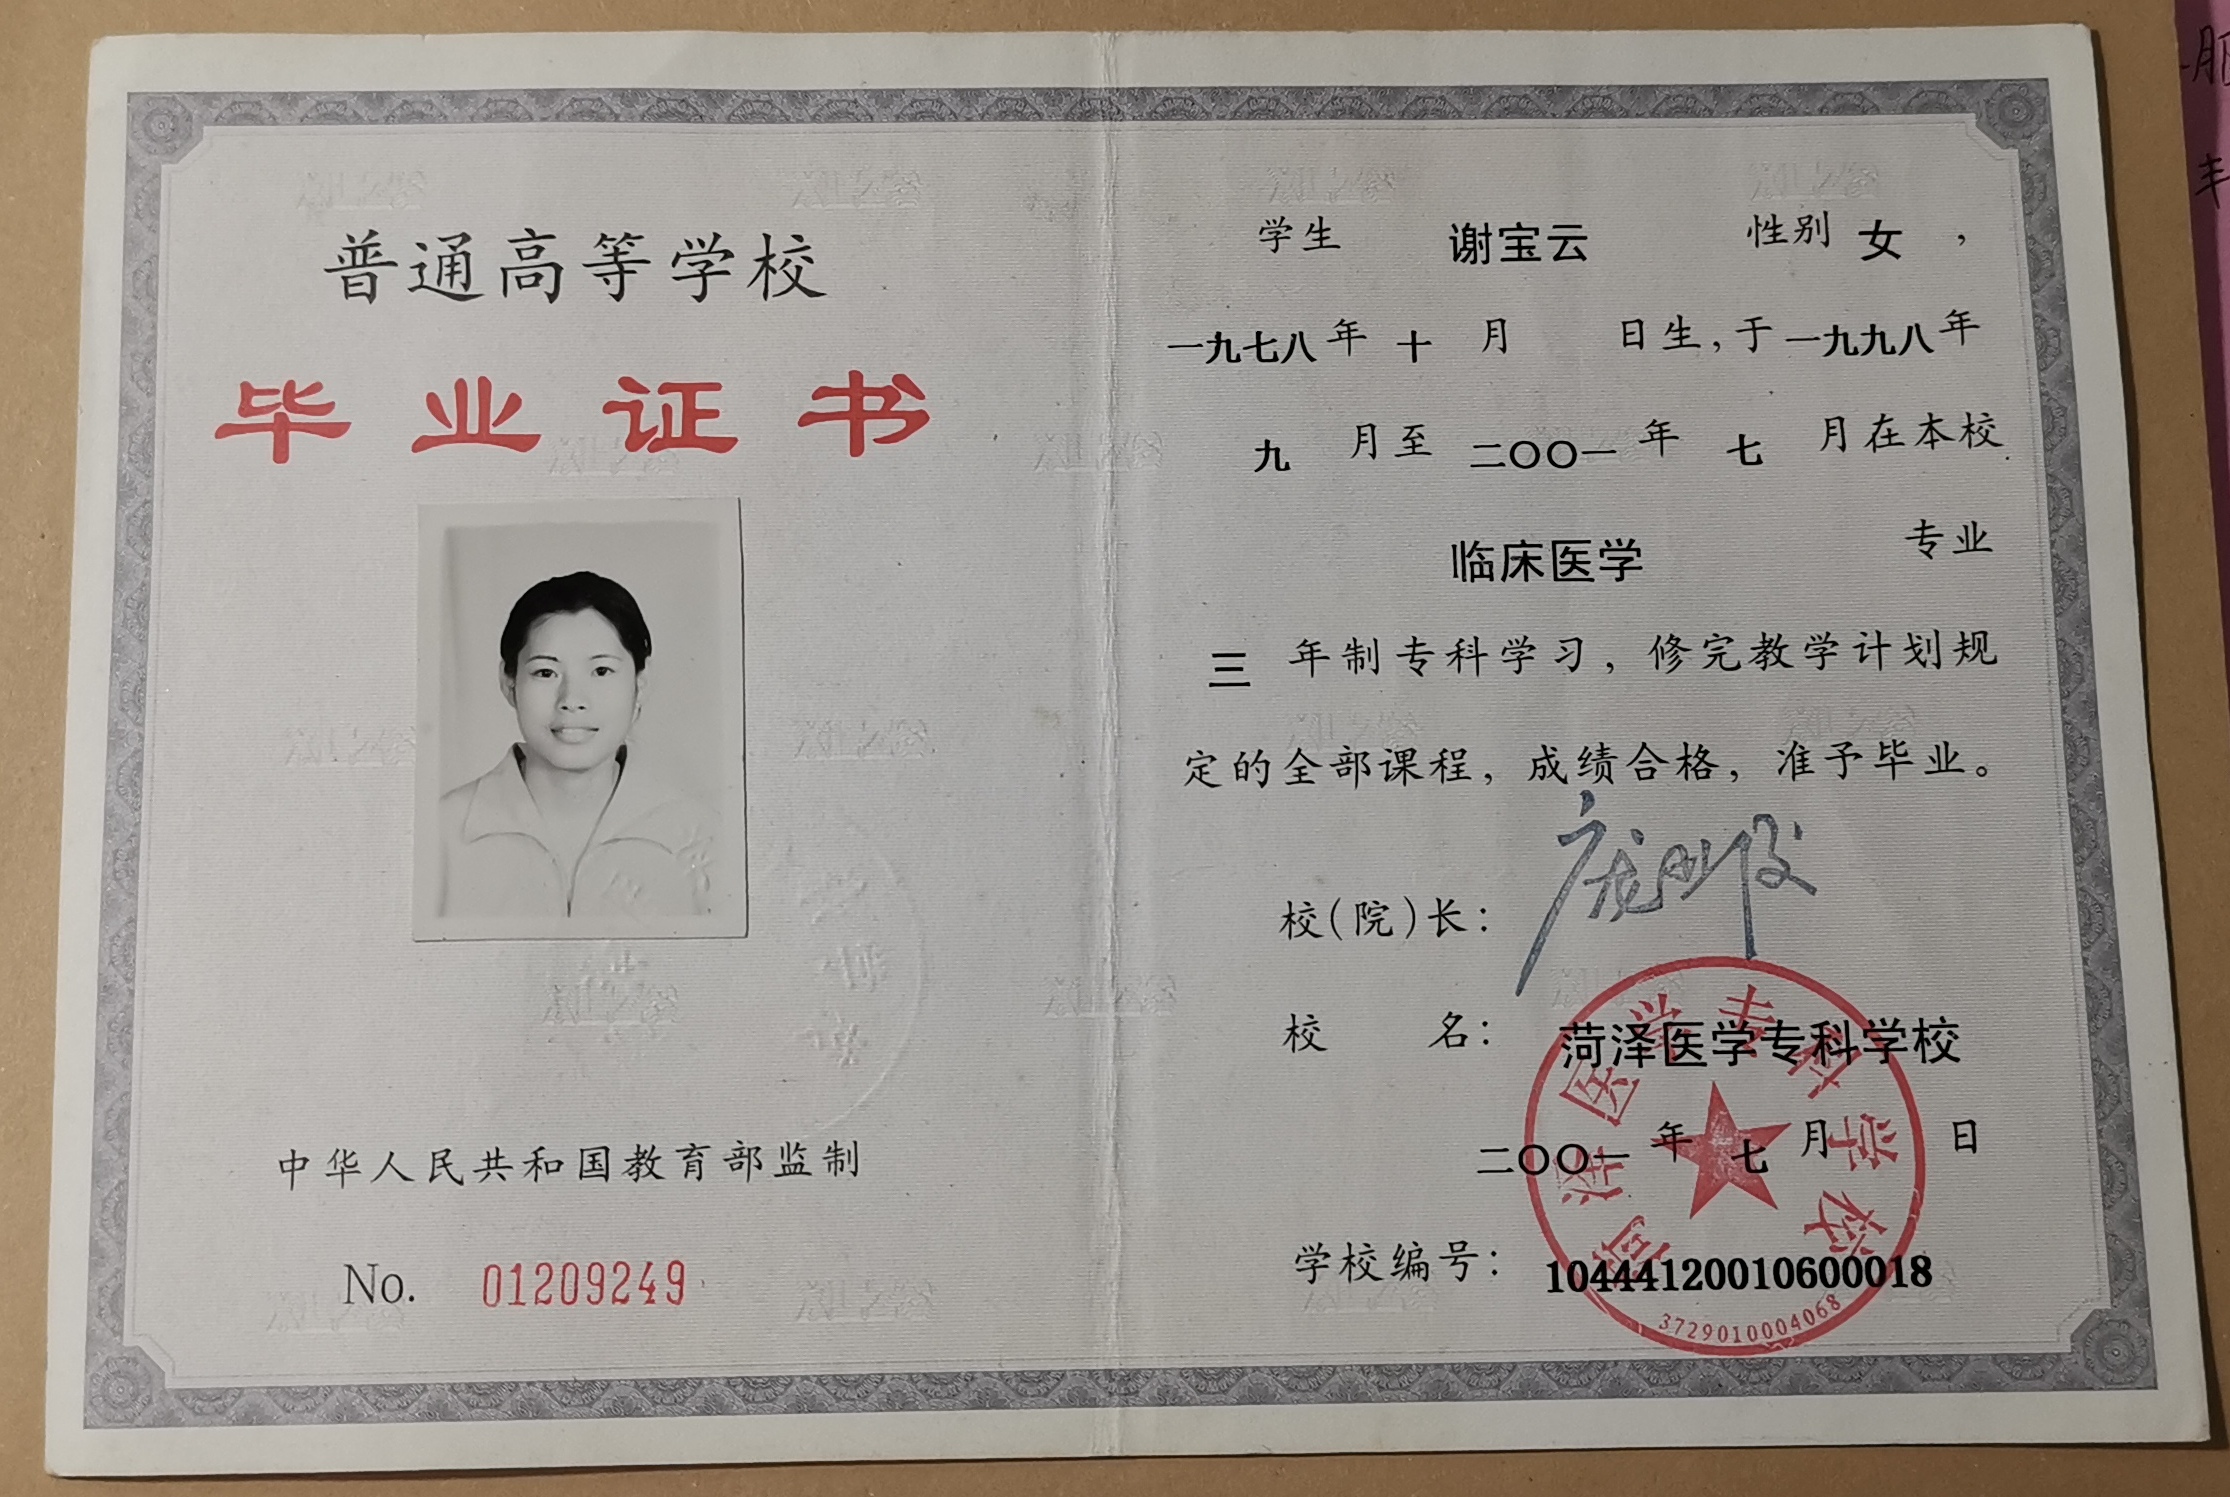 普通高等学校
毕业证书
中华人民共和国教育部监制
No. 01209249
学生 谢宝云 性别 女 ，
一九七八年 十 月 日生，于一九九八年
九 月至 二〇〇一 年 七 月在本校
临床医学 专业
三 年制专科学习，修完教学计划规
定的全部课程，成绩合格，准予毕业。
校(院)长：
校 名： 菏泽医学专科学校
二〇〇一 年 七 月 日
学校编号： 10444120010600018
菏泽医学专科学校
3729010004068